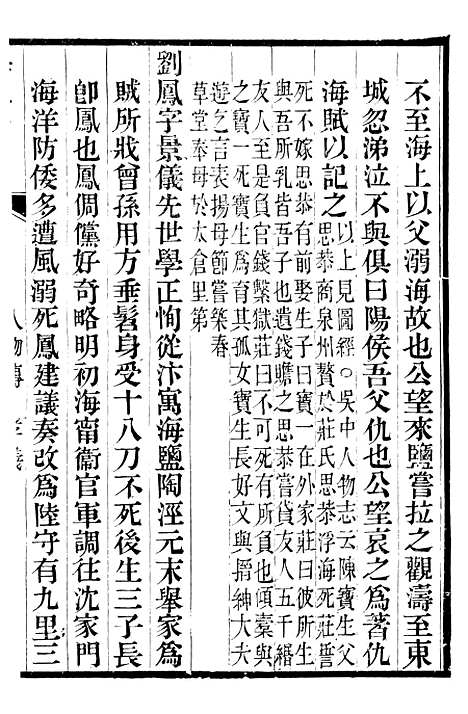 不至海上以父溺海故也公望來鹽嘗拉之觀濤至東
城忽涕泣不與俱曰陽侯吾父仇也公望哀之爲著仇
海賦以記之以上見圖經○吳中人物志云陳寶生父
思恭商泉州贅於莊氏思恭浮海死莊誓
死不嫁思恭有前娶生子曰寶一在外家莊曰彼所生
與吾所乳皆吾子也遺錢贍之思恭嘗貸友人五千緡
之寶一死寶生爲育其孤女寶生長好文與搢紳大夫
之寶一是負官錢繫獄莊曰友有所負也傾橐與
遊之言表揚母節嘗築春
草堂奉母於太倉里第
劉鳳字景儀先世學正恂從汴寓海鹽陶涇元末舉家爲
賊所戕曾孫用方垂髫身受十八刀不死後生三子長
卽鳳也鳳倜儻好奇略明初海甯衞官軍調往沈家門
海洋防倭多遭風溺死鳳建議奏改爲陸守有九里三
人物傳